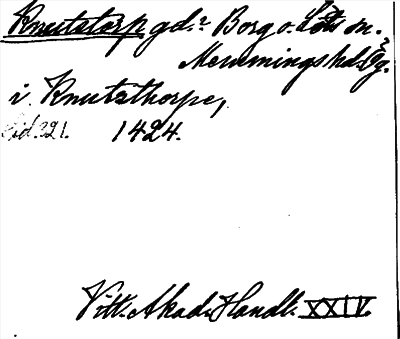 Knutstorp gd.? Borg o. Löts sn.
Memmings hd. Ög.
i Knutzthorpe,
Sid. 321. 1424.
Vitt. Akad. Handl. XXIV.